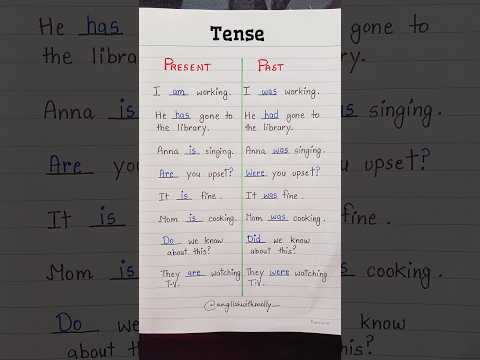 He has
the li
Anna
Are
It is
Mom is
Do
about this?
Tense
PRESENT PAST
I am working. I was working.
He has gone to He had gone to
the library. the library.
Anna is singing. Anna was singing.
Are you upset? Were you upset?
It is fine. It was fine.
Mom is cooking. Mom was cooking.
Do we know Did we know
about this? about this?
They are watching They were watching
T.V. T.V.
@englishwithmolly_
gone to
singing.
upset?
fine.
cooking.
know